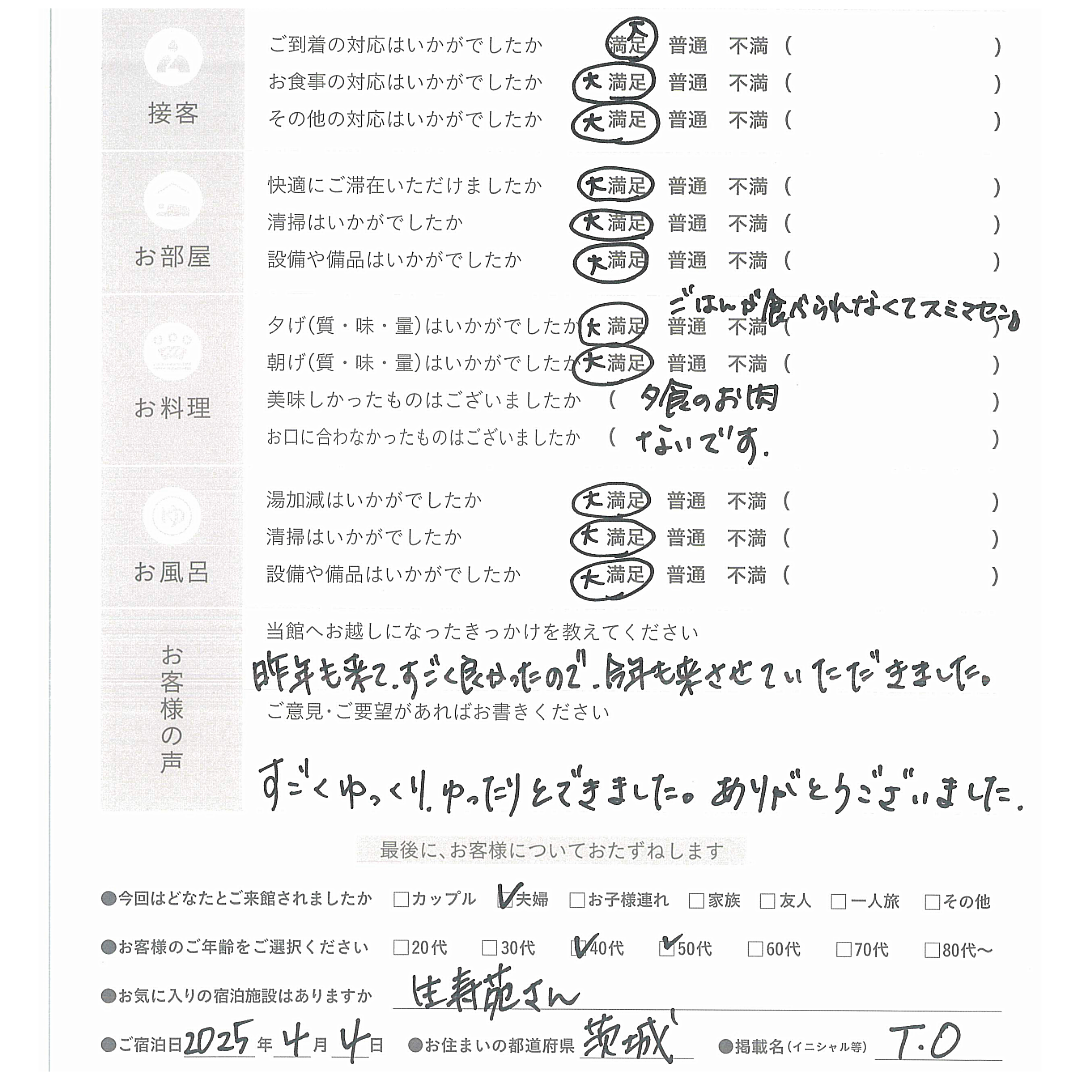 接客
ご到着の対応はいかがでしたか 大満足 普通 不満 ( )
お食事の対応はいかがでしたか 大満足 普通 不満 ( )
その他の対応はいかがでしたか 大満足 普通 不満 ( )
お部屋
快適にご滞在いただけましたか 大満足 普通 不満 ( )
清掃はいかがでしたか 大満足 普通 不満 ( )
設備や備品はいかがでしたか 大満足 普通 不満 ( )
お料理
ごはんが食べられなくてスミマセン。
夕げ(質・味・量)はいかがでしたか 大満足 普通 不満 ( )
朝げ(質・味・量)はいかがでしたか 大満足 普通 不満 ( )
美味しかったものはございましたか ( 夕食のお肉 )
お口に合わなかったものはございましたか ( ないです. )
お風呂
ゆ
湯加減はいかがでしたか 大満足 普通 不満 ( )
清掃はいかがでしたか 大満足 普通 不満 ( )
設備や備品はいかがでしたか 大満足 普通 不満 ( )
お客様の声
当館へお越しになったきっかけを教えてください
昨年も来て、すごく良かったので、今年も来させていただきました。
ご意見・ご要望があればお書きください
すごくゆっくり、ゆったりとできました。ありがとうございました.
最後に、お客様についておたずねします
●今回はどなたとご来館されましたか □カップル ☑夫婦 □お子様連れ □家族 □友人 □一人旅 □その他
●お客様のご年齢をご選択ください □20代 □30代 ☑40代 ☑50代 □60代 □70代 □80代〜
●お気に入りの宿泊施設はありますか 生寿苑さん
●ご宿泊日 2025年 4月 4日 ●お住まいの都道府県 茨城 ●掲載名(イニシャル等) T.O